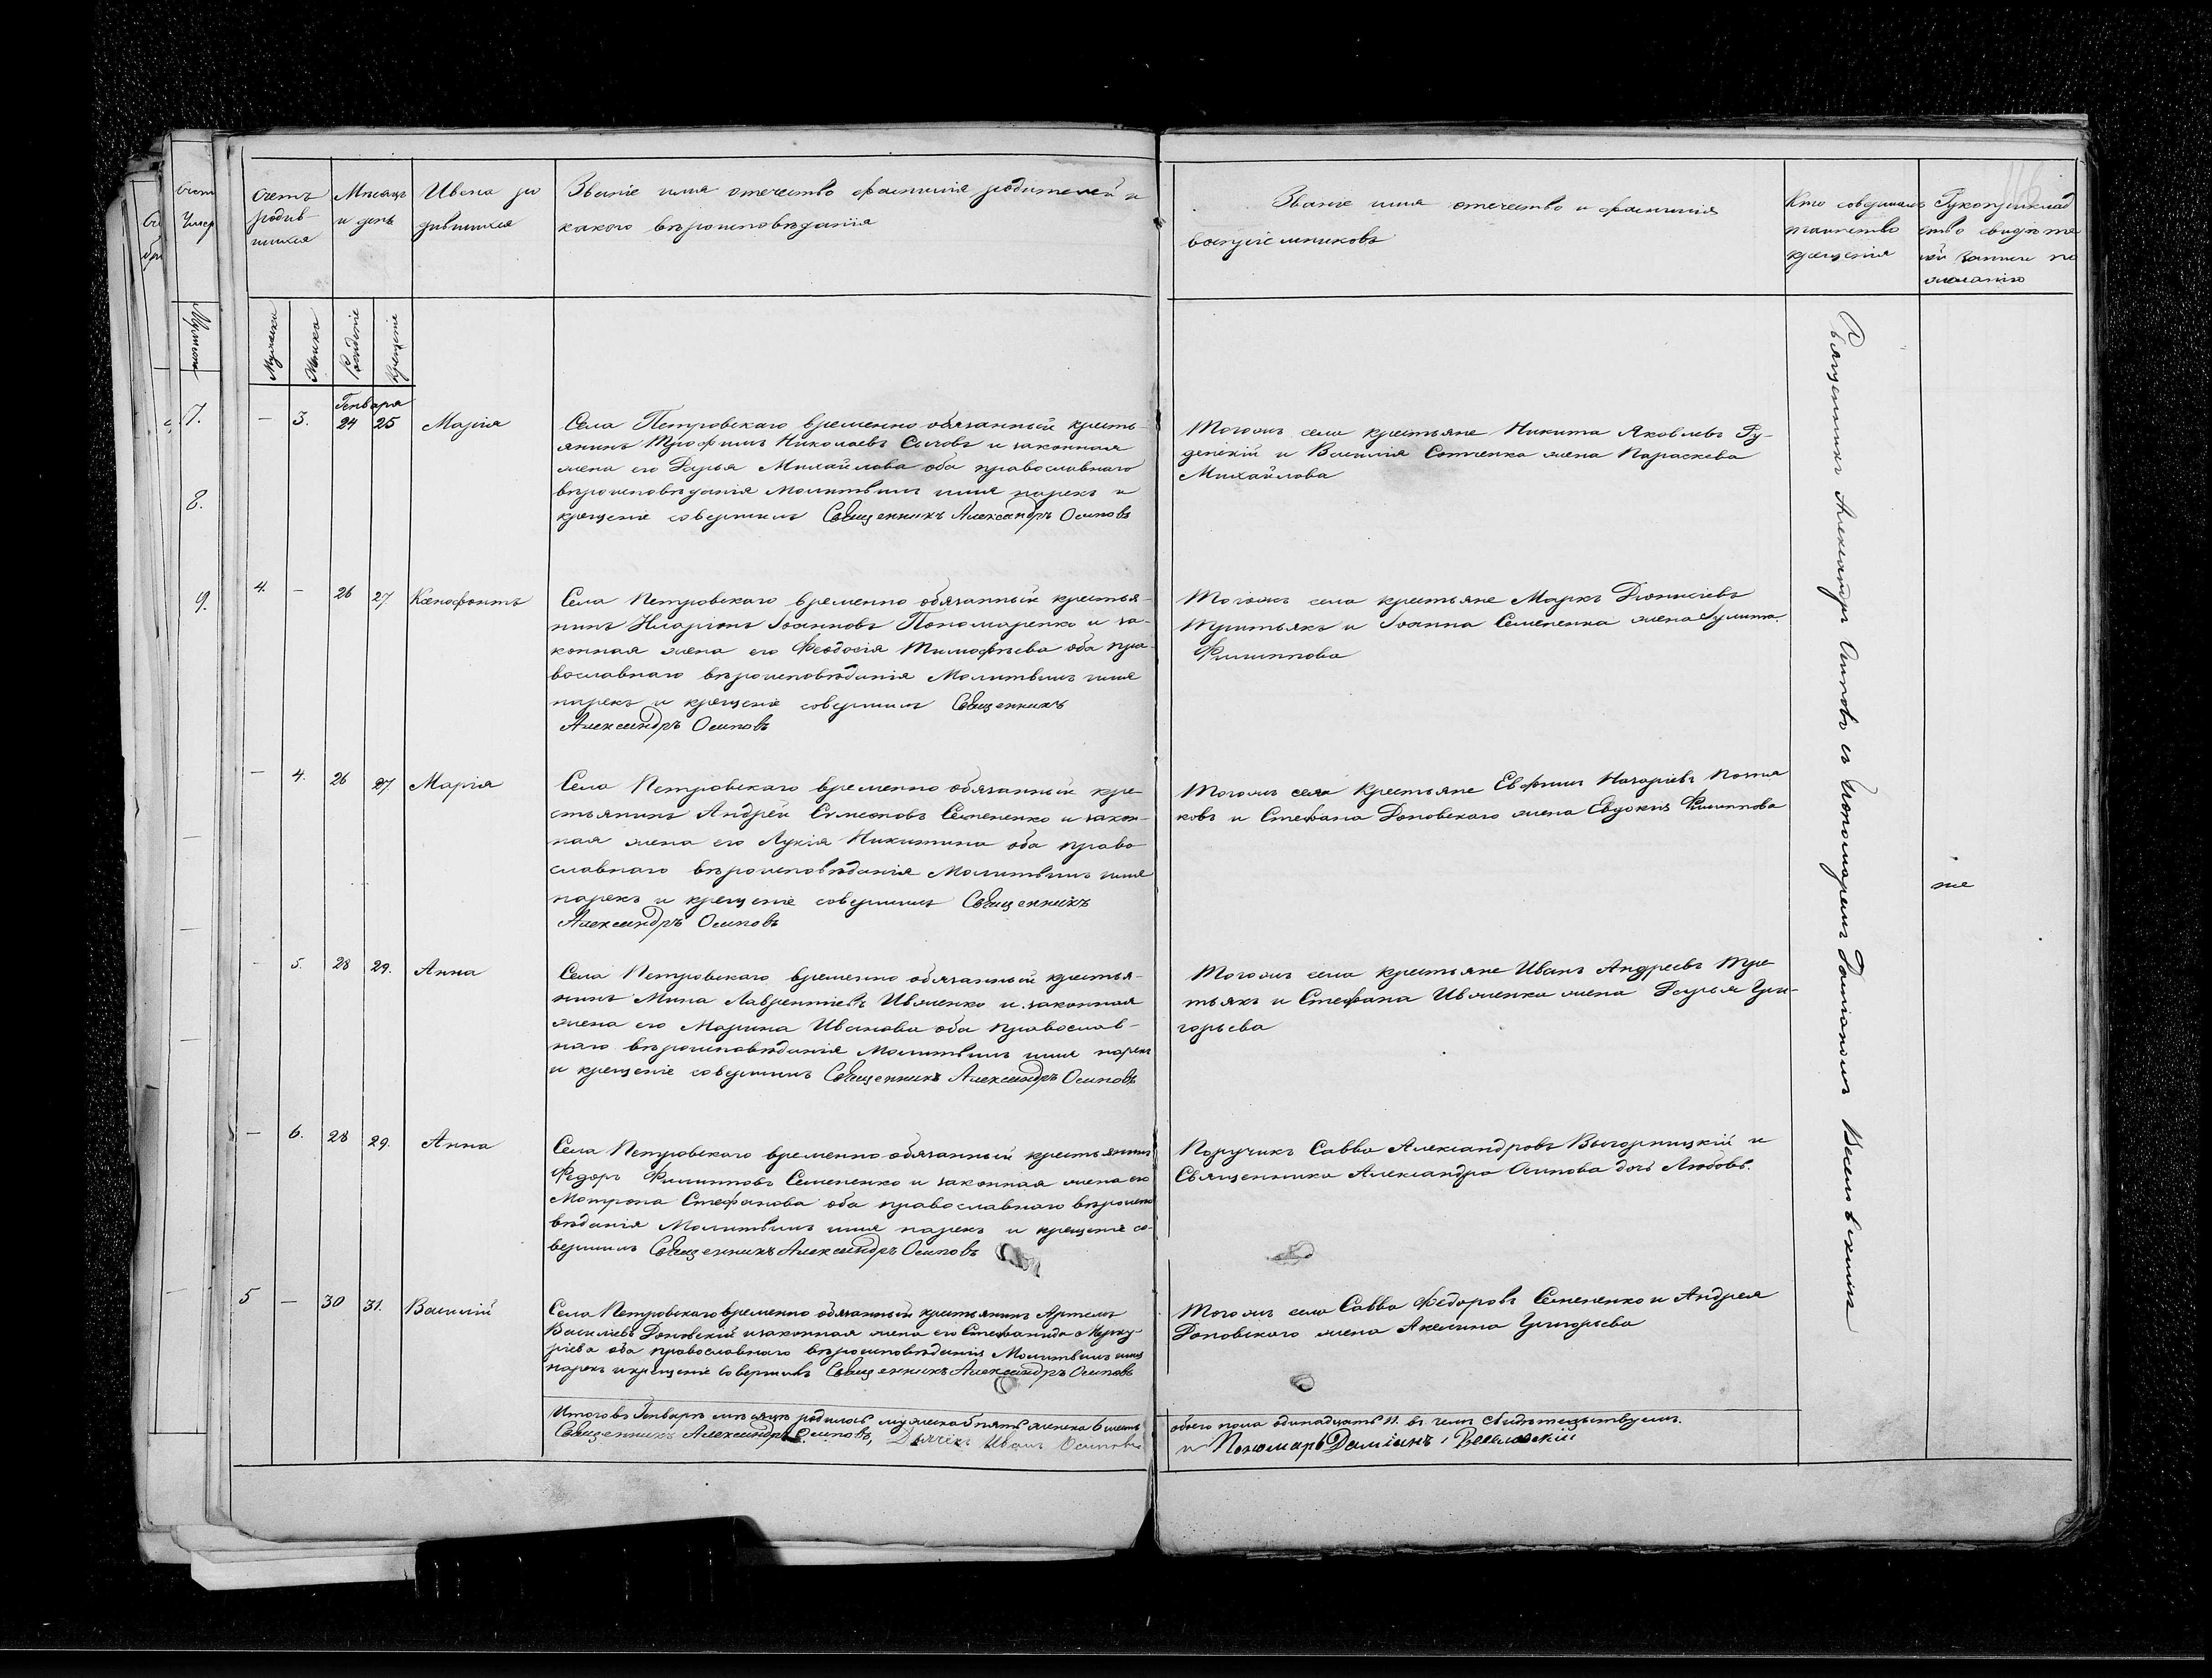 Счетъ родив-
шихся
Мѣсяцъ
и день
Имена ро
дившихся
Званіе имя отечество фамилія родителей и
какого вѣроисповѣданія
Званіе имя отечество и фамилія
воспріемниковъ
Кто совершалъ
таинство
крещенія
Рукоприклад
ство свидѣте
лей записи по
желанію
Мужеска
Женска
Рожденіе
Крещеніе
Генваря
7.
8.
9.
— 3. 24 25 Марія
Села Петровскаго временно обязанный кресть-
янинъ Трофимъ Николаевъ и законная
жена его Дарья Михайлова оба православнаго
вѣроисповѣданія Молитвилъ имя нарекъ и
крещеніе совершилъ Священникъ Александръ Осиповъ
Тогожъ села крестьяне Никита Яковлевъ Ру-
денскій и Василія Сотченка жена Параскева
Михайлова
4. — 26 27 Ксенофонтъ
Села Петровскаго временно обязанный крестья-
нинъ Иларіонъ Іоанновъ Пономаренко и за-
конная жена его Феодосія Тимофѣева оба пра-
вославнаго вѣроисповѣданія Молитвилъ имя
нарекъ и крещеніе совершилъ Священникъ
Александръ Осиповъ
Тогожъ села крестьяне Маркъ Діонисіевъ
Третьякъ и Іоанна Семененка жена Гулита
Филиппова
— 4. 26 27 Марія
Села Петровскаго временно обязанный кре
стьянинъ Андрей Симеоновъ Семененко и закон-
ная жена его Лукія Никитина оба право
славнаго вѣроисповѣданія Молитвилъ имя
нарекъ и крещеніе совершилъ Священникъ
Александръ Осиповъ
Тогожъ села Крестьяне Евфимъ Назаріевъ
ковъ и Стефана Доновскаго жена Евдокія Филиппова
- 5. 28 29. Анна
Села Петровскаго временно обязанный крестья-
нинъ Мина Лаврентіевъ Ивженко и законная
жена его Марина Иванова оба православ-
наго вѣроисповѣданія Молитвилъ имя нарекъ
и крещеніе совершилъ Священникъ Александръ Осиповъ
Тогожъ села крестьяне Иванъ Андреевъ Тре
тьякъ и Стефана Ивженка жена Дарья Гри-
горьева
— 6. 28 29. Анна
Села Петровскаго временно обязанный крестьянинъ
Федоръ Филипповъ Семененко и законная жена его
Матрона Стефанова оба православнаго вѣроиспо
вѣданія Молитвилъ имя нарекъ и крещеніе со-
вершилъ Священникъ Александръ Осиповъ
Поручикъ Савва Александровъ Выгорницкій и
Священника Александра Осипова дочь Любовь.
5 — 30 31. Василій
Села Петровскаго временно обязанный крестьянинъ Артемъ
Василіевъ Доновскій и законная жена его Стефанида Мерку
ріева оба православнаго вѣроисповѣданія Молитвилъ имя
нарекъ и крещеніе совершилъ Священникъ Александръ Осиповъ
Тогожъ села Савва Федоровъ Семененко и Андрея
Доновскаго жена Акелина Григорьева
Священникъ Александръ Осиповъ съ Пономаремъ Даміаномъ Веселовскимъ
Итого въ Генварѣ мѣсяцѣ родилось мужеска 5 пять женска 6 шесть
обоего пола одинадцать 11. въ чемъ свидѣтельствуемъ.
Священникъ Александръ Осиповъ, Дьячекъ Иванъ Осиповъ
и Пономарь Даміанъ Веселовскій